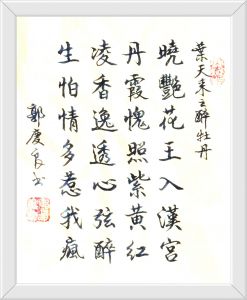 葉天來之醉牡丹
曉艷花王入漢宮
丹霞愧照紫黃紅
凌香逸透心弦醉
生怕情多惹我瘋
郭慶良书